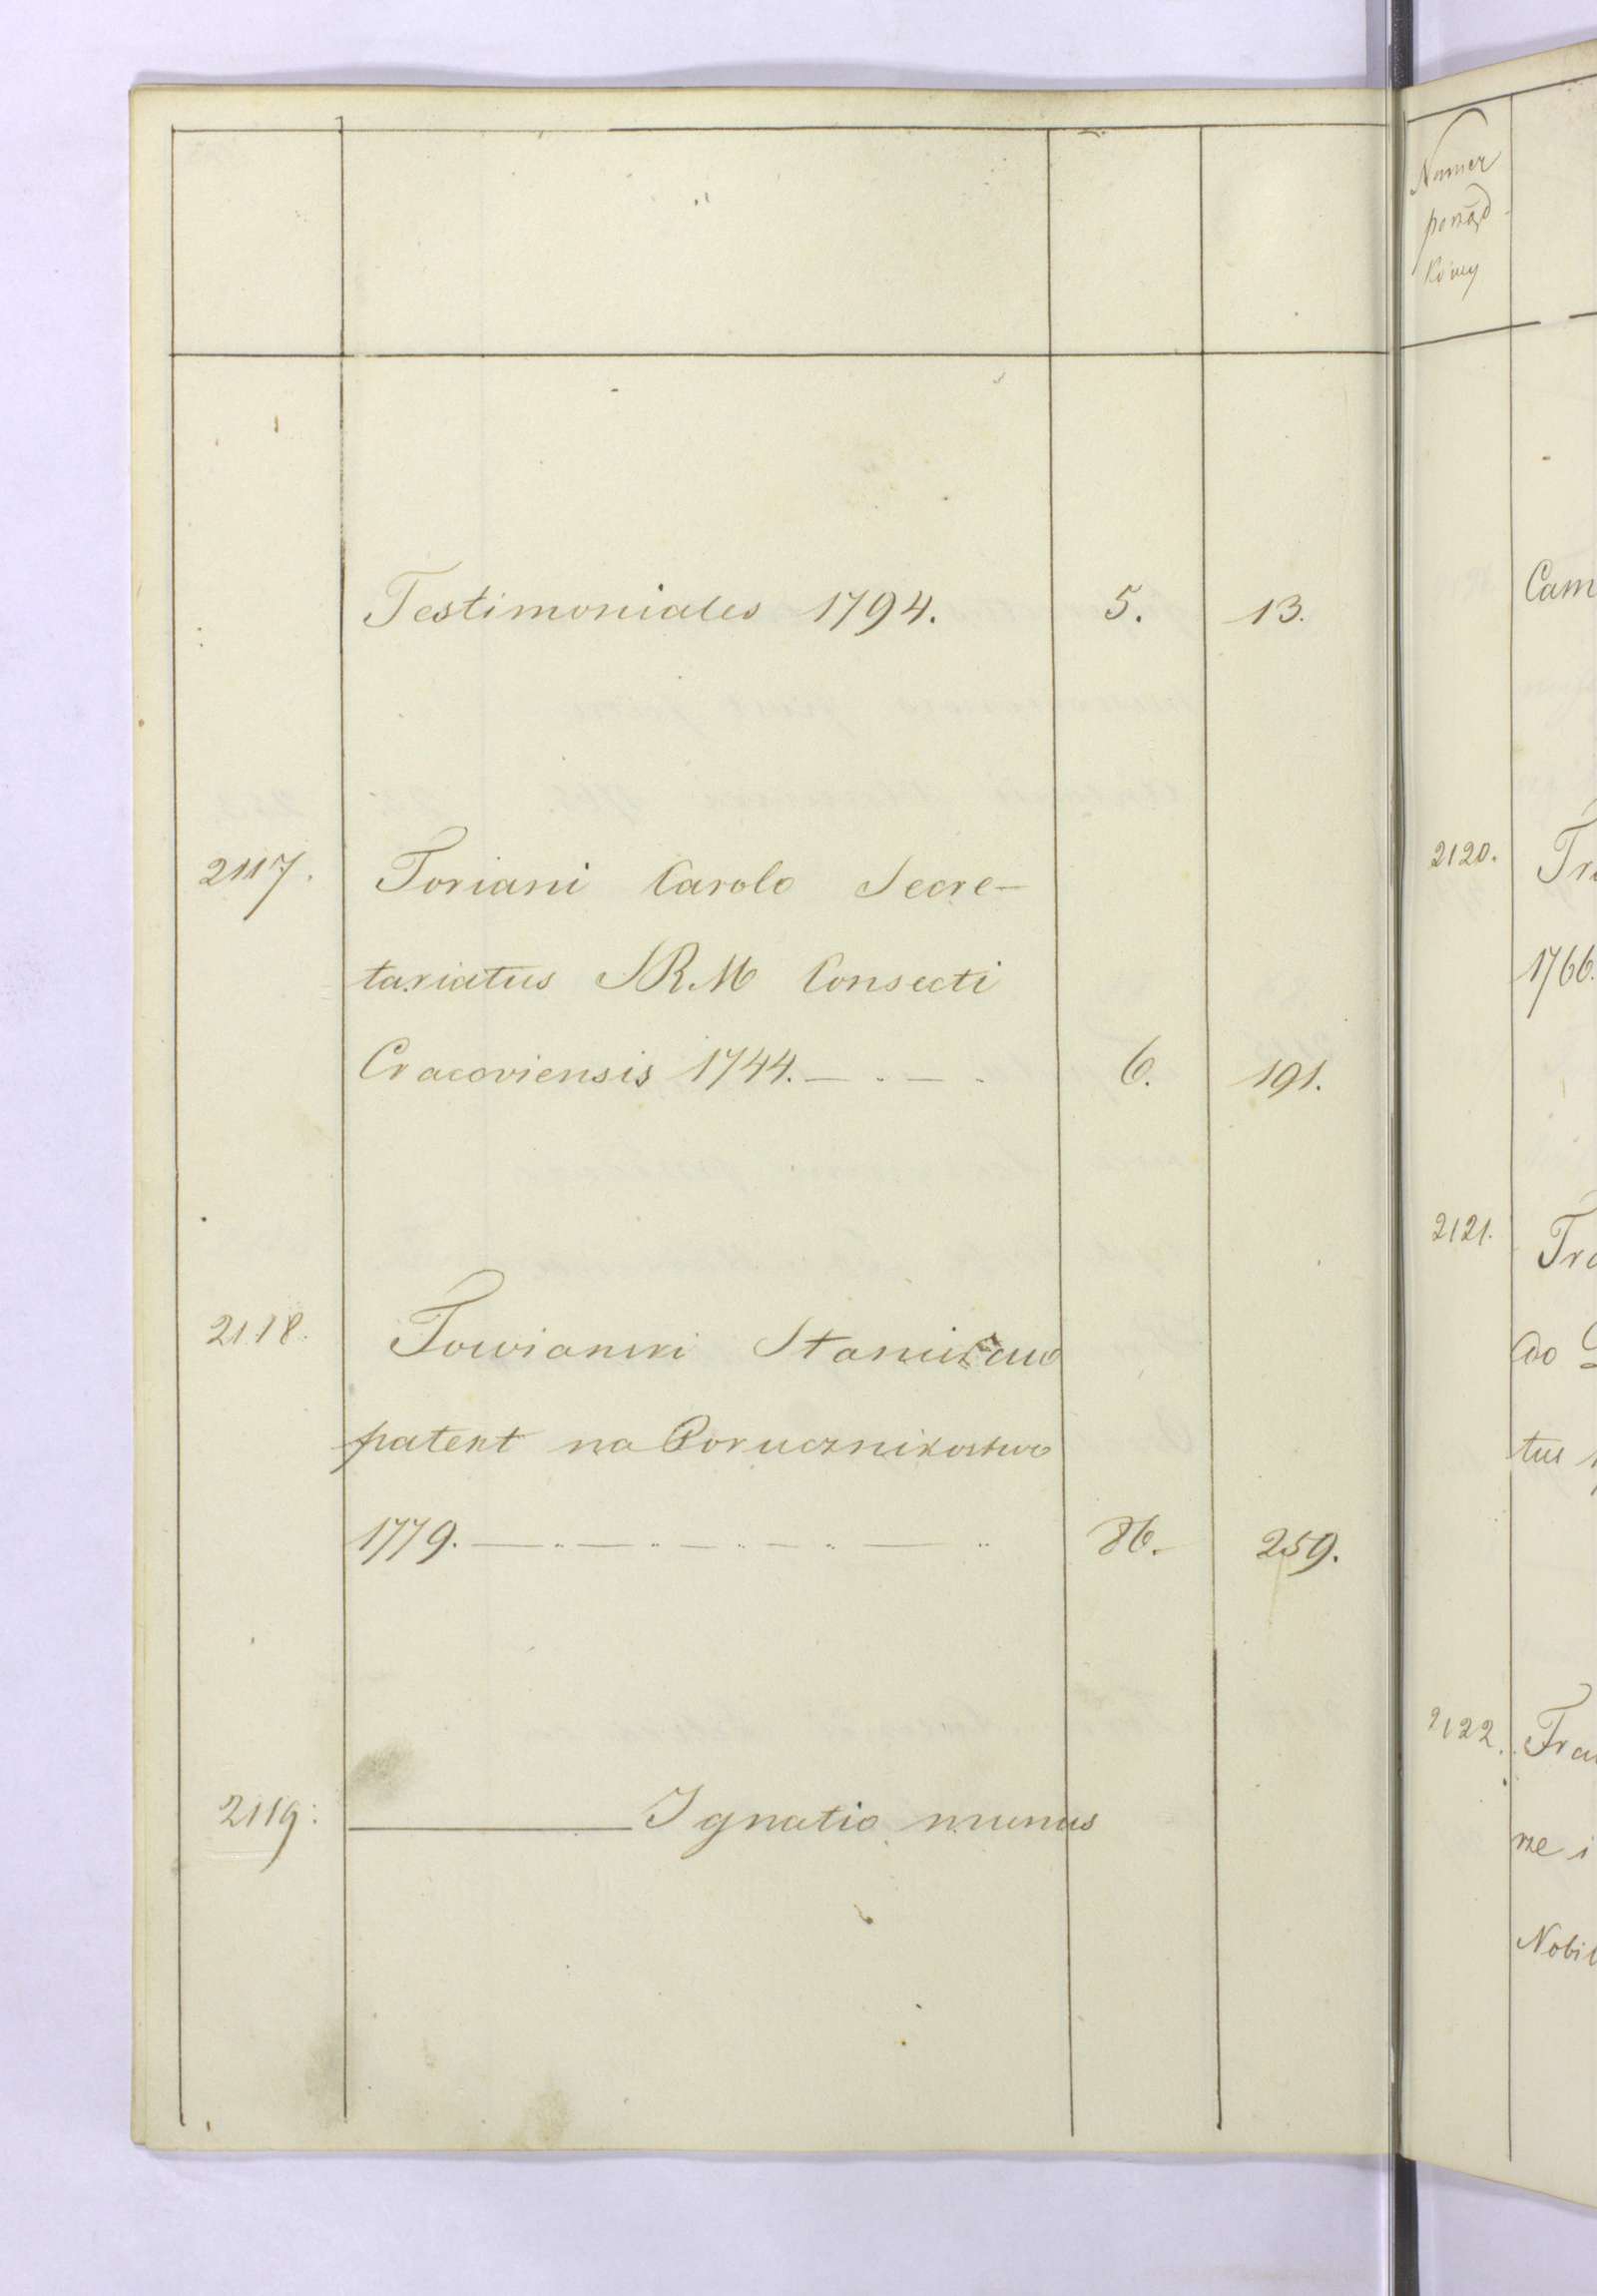 Testimoniales 1794. 5. 13.
2117. Toriani Carolo Secre-
tariatus S.R.M Consecti
Cracoviensis 1744. 6. 191.
2118. Towianski Stanisław
patent na Porucznikostwo
1779. 86. 259.
2119. Ignatio munus
Numer
porząd-
kowy
Cam
2120. Tra
1766.
2121. Tra
do
tus
2122. Tra
rze i
Nobil